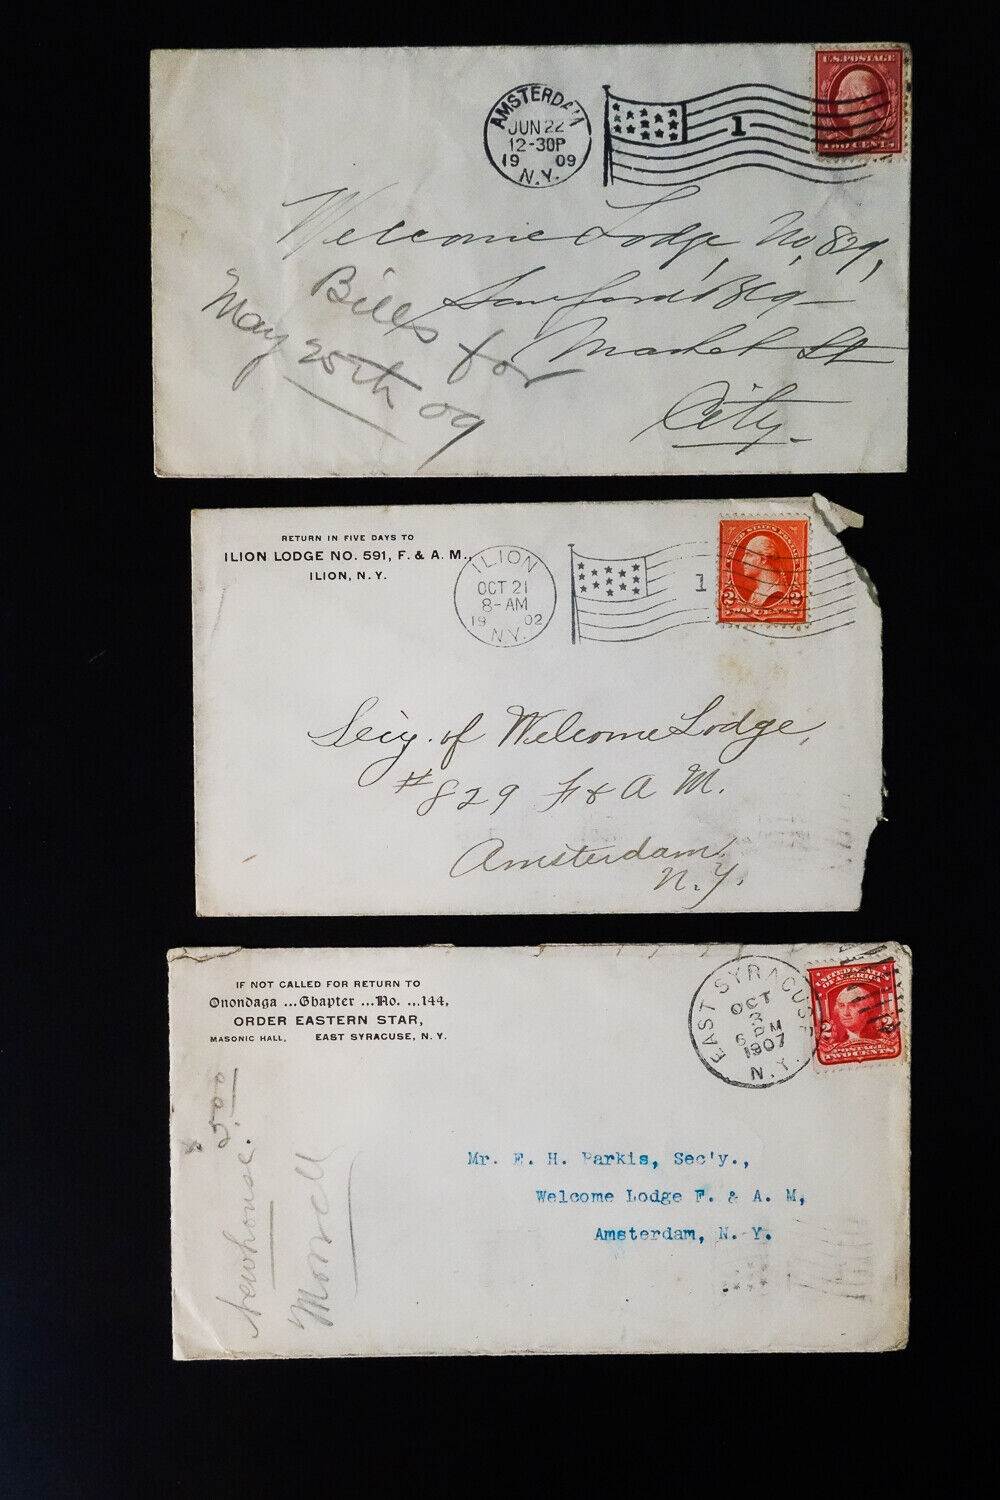 AMSTERDAM
JUN 22
12-30P
19 09
N.Y.
1
U.S. POSTAGE
TWO CENTS
Welcome Lodge, No, 829,
Sanford Blg-
Market St
City-
Bills for
May 25th 09
RETURN IN FIVE DAYS TO
ILION LODGE NO. 591, F. & A. M.,
ILION, N. Y.
ILION
OCT 21
8-AM
19 02
N.Y.
1
2 2
TWO CENTS
Sec'y. of Welcome Lodge,
#829 F & A M.
Amsterdam,
N.Y.
IF NOT CALLED FOR RETURN TO
Onondaga ...Chapter ...No. ...144,
ORDER EASTERN STAR,
MASONIC HALL, EAST SYRACUSE, N. Y.
EAST SYRACUSE
OCT
3
6 PM
1907
N.Y.
UNITED STATES
OF AMERICA
2 2
POSTAGE
TWO CENTS
Mr. E. H. Parkis, Sec'y.,
Welcome Lodge F. & A. M,
Amsterdam, N. Y.
Newhouse. 500